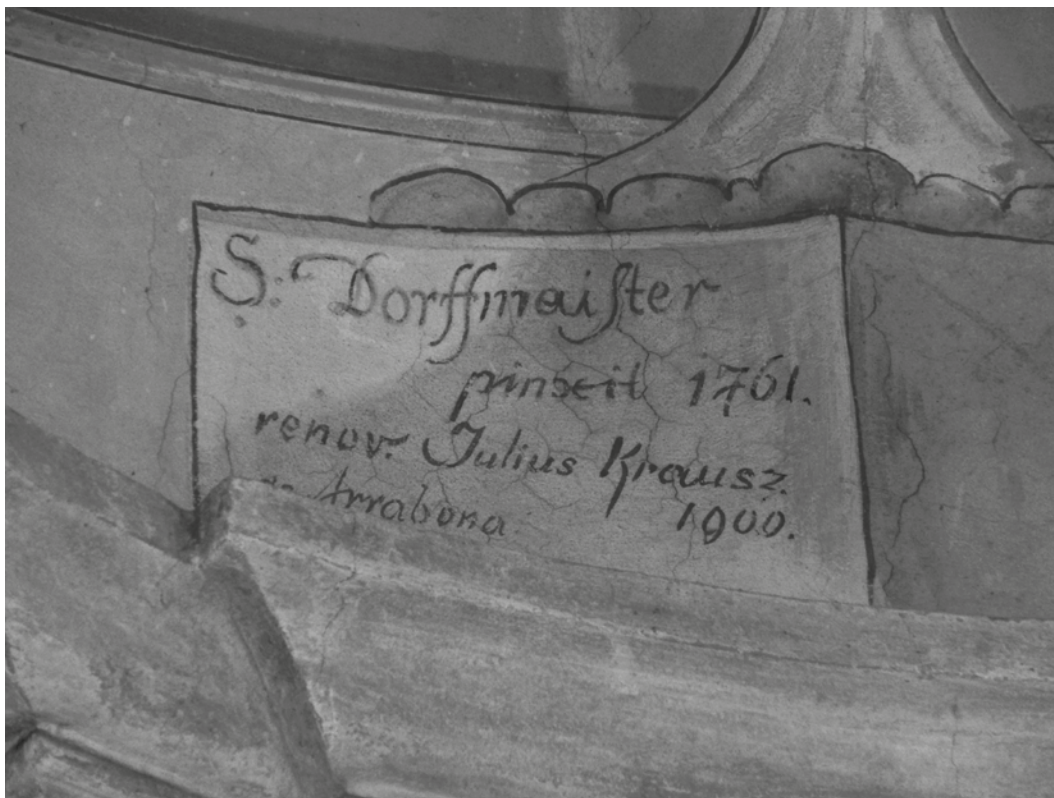 S: Dorffmaiſter
pinxit 1761.
renov. Julius Krausz.
Arrabona 1900.